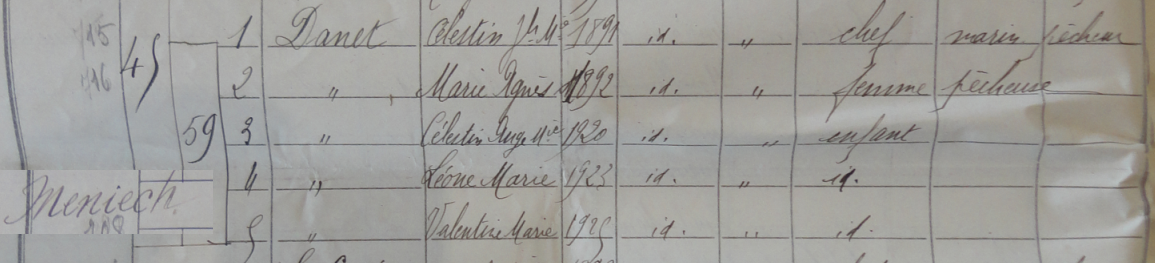 115 45 1 Danet Célestin Jh Mie 1891 id. " chef marin pêcheur
116 2 " Marie Agnès 1892 id. " femme pêcheuse
59 3 " Célestin Ange Mie 1920 id. " enfant
Meniech 4 " Léone Marie 1923 id. " id.
118 5 " Valentine Marie 1925 id. " id.